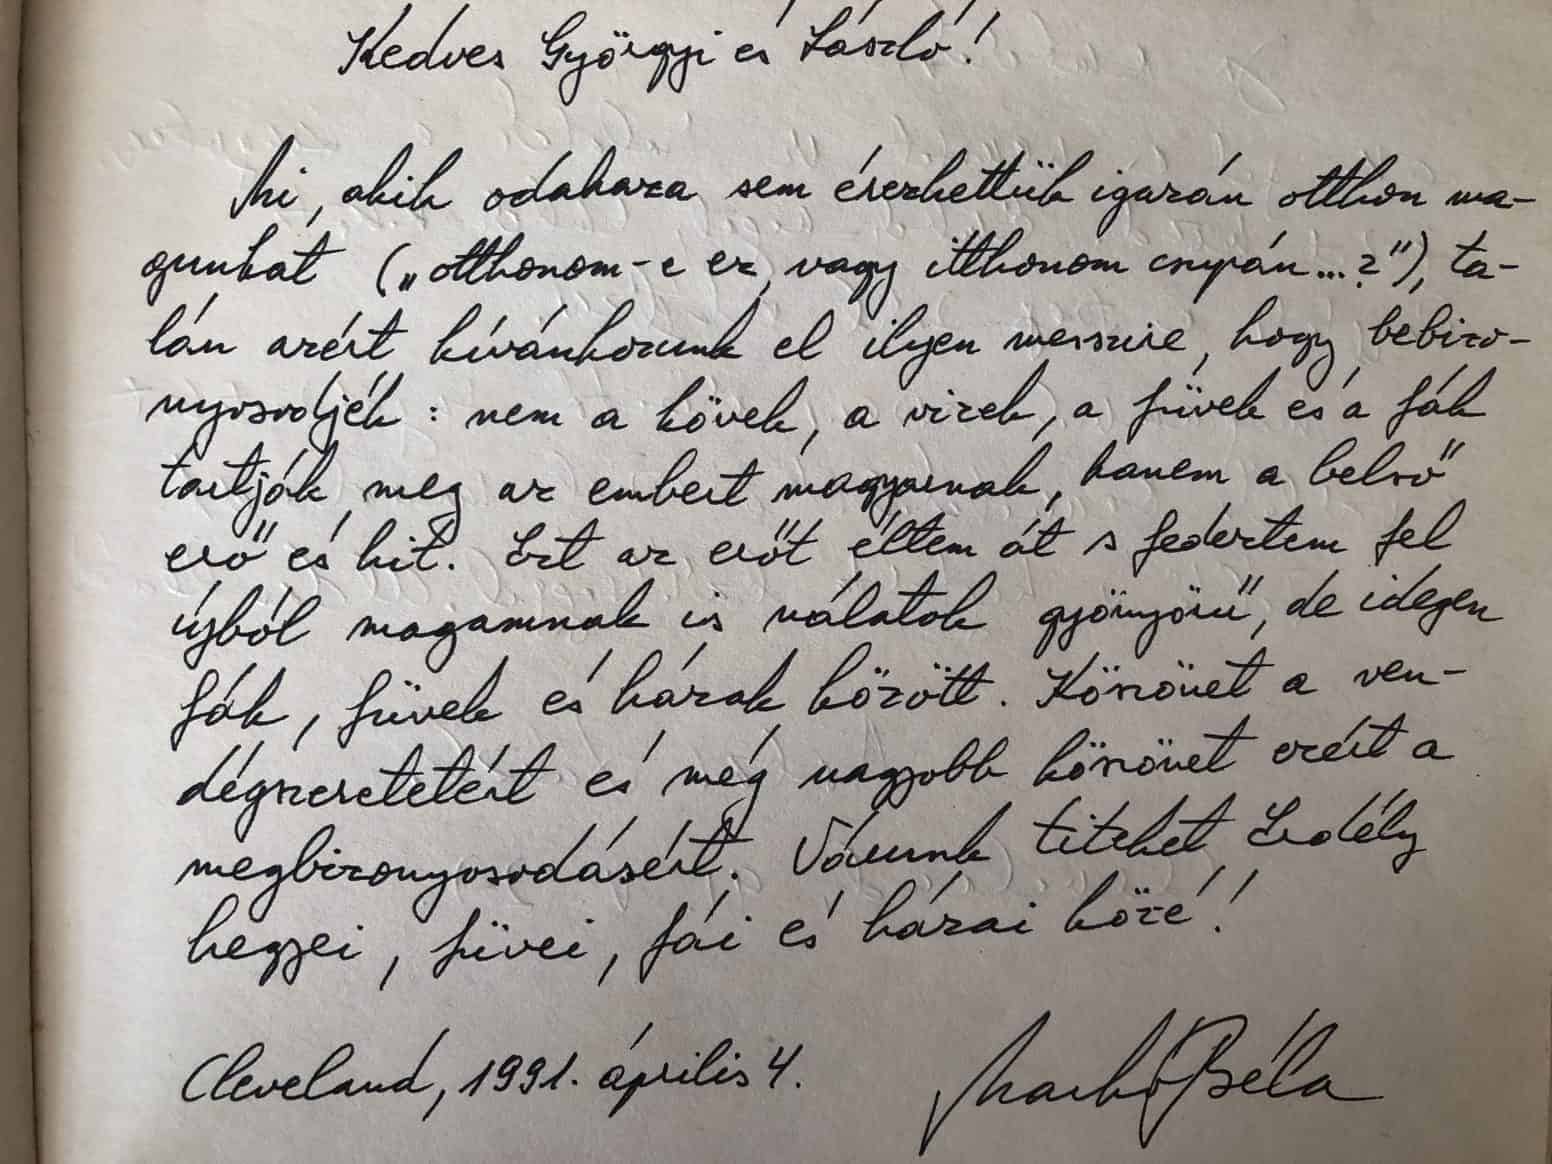 Kedves Györgyi és László!
Mi, akik odahaza sem érezhettük igazán otthon ma-
gunkat („otthonom-e ez, vagy itthonom csupán...?"), ta-
lán azért kívánkozunk el ilyen messzire, hogy bebizo-
nyosodjék: nem a kövek, a vizek, a füvek és a fák
tartják meg az embert magyarnak, hanem a belső
erő és hit. Ezt az erőt éltem át s fedeztem fel
újból magamnak is nálatok gyönyörű, de idegen
fák, füvek és házak között. Köszönet a ven-
dégszeretetért és még nagyobb köszönet ezért a
megbizonyosodásért. Várunk titeket Erdély
hegyei, füvei, fái és házai közé!
Cleveland, 1991. április 4.
Markó Béla